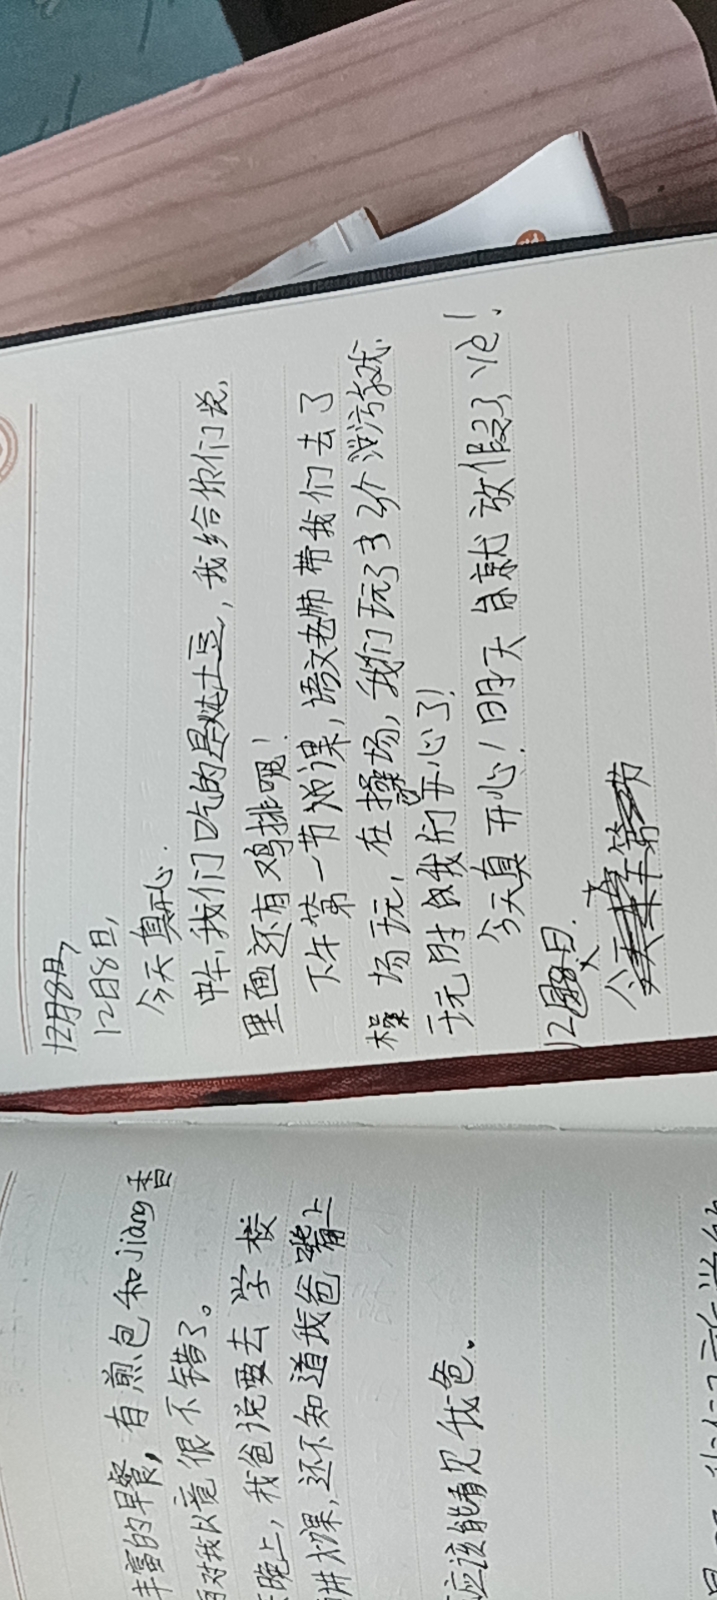 丰富的早餐，有煎包和jiang香
对我以竟很不错了。
晚上，我爸说要去学校
讲大课，还不知道我爸嘴上
应该能看见我爸。
12月8日，
12月8日，
今天真开心.
中午，我们吃的是炖土豆，我给你们说，
里面还有鸡排呢！
下午第一节 课，语文老师带我们去了
操场玩，在操场，我们玩了3个
玩 我们开心了！
今天真开心！明天 就放假了，ye！
12月 日.
今天